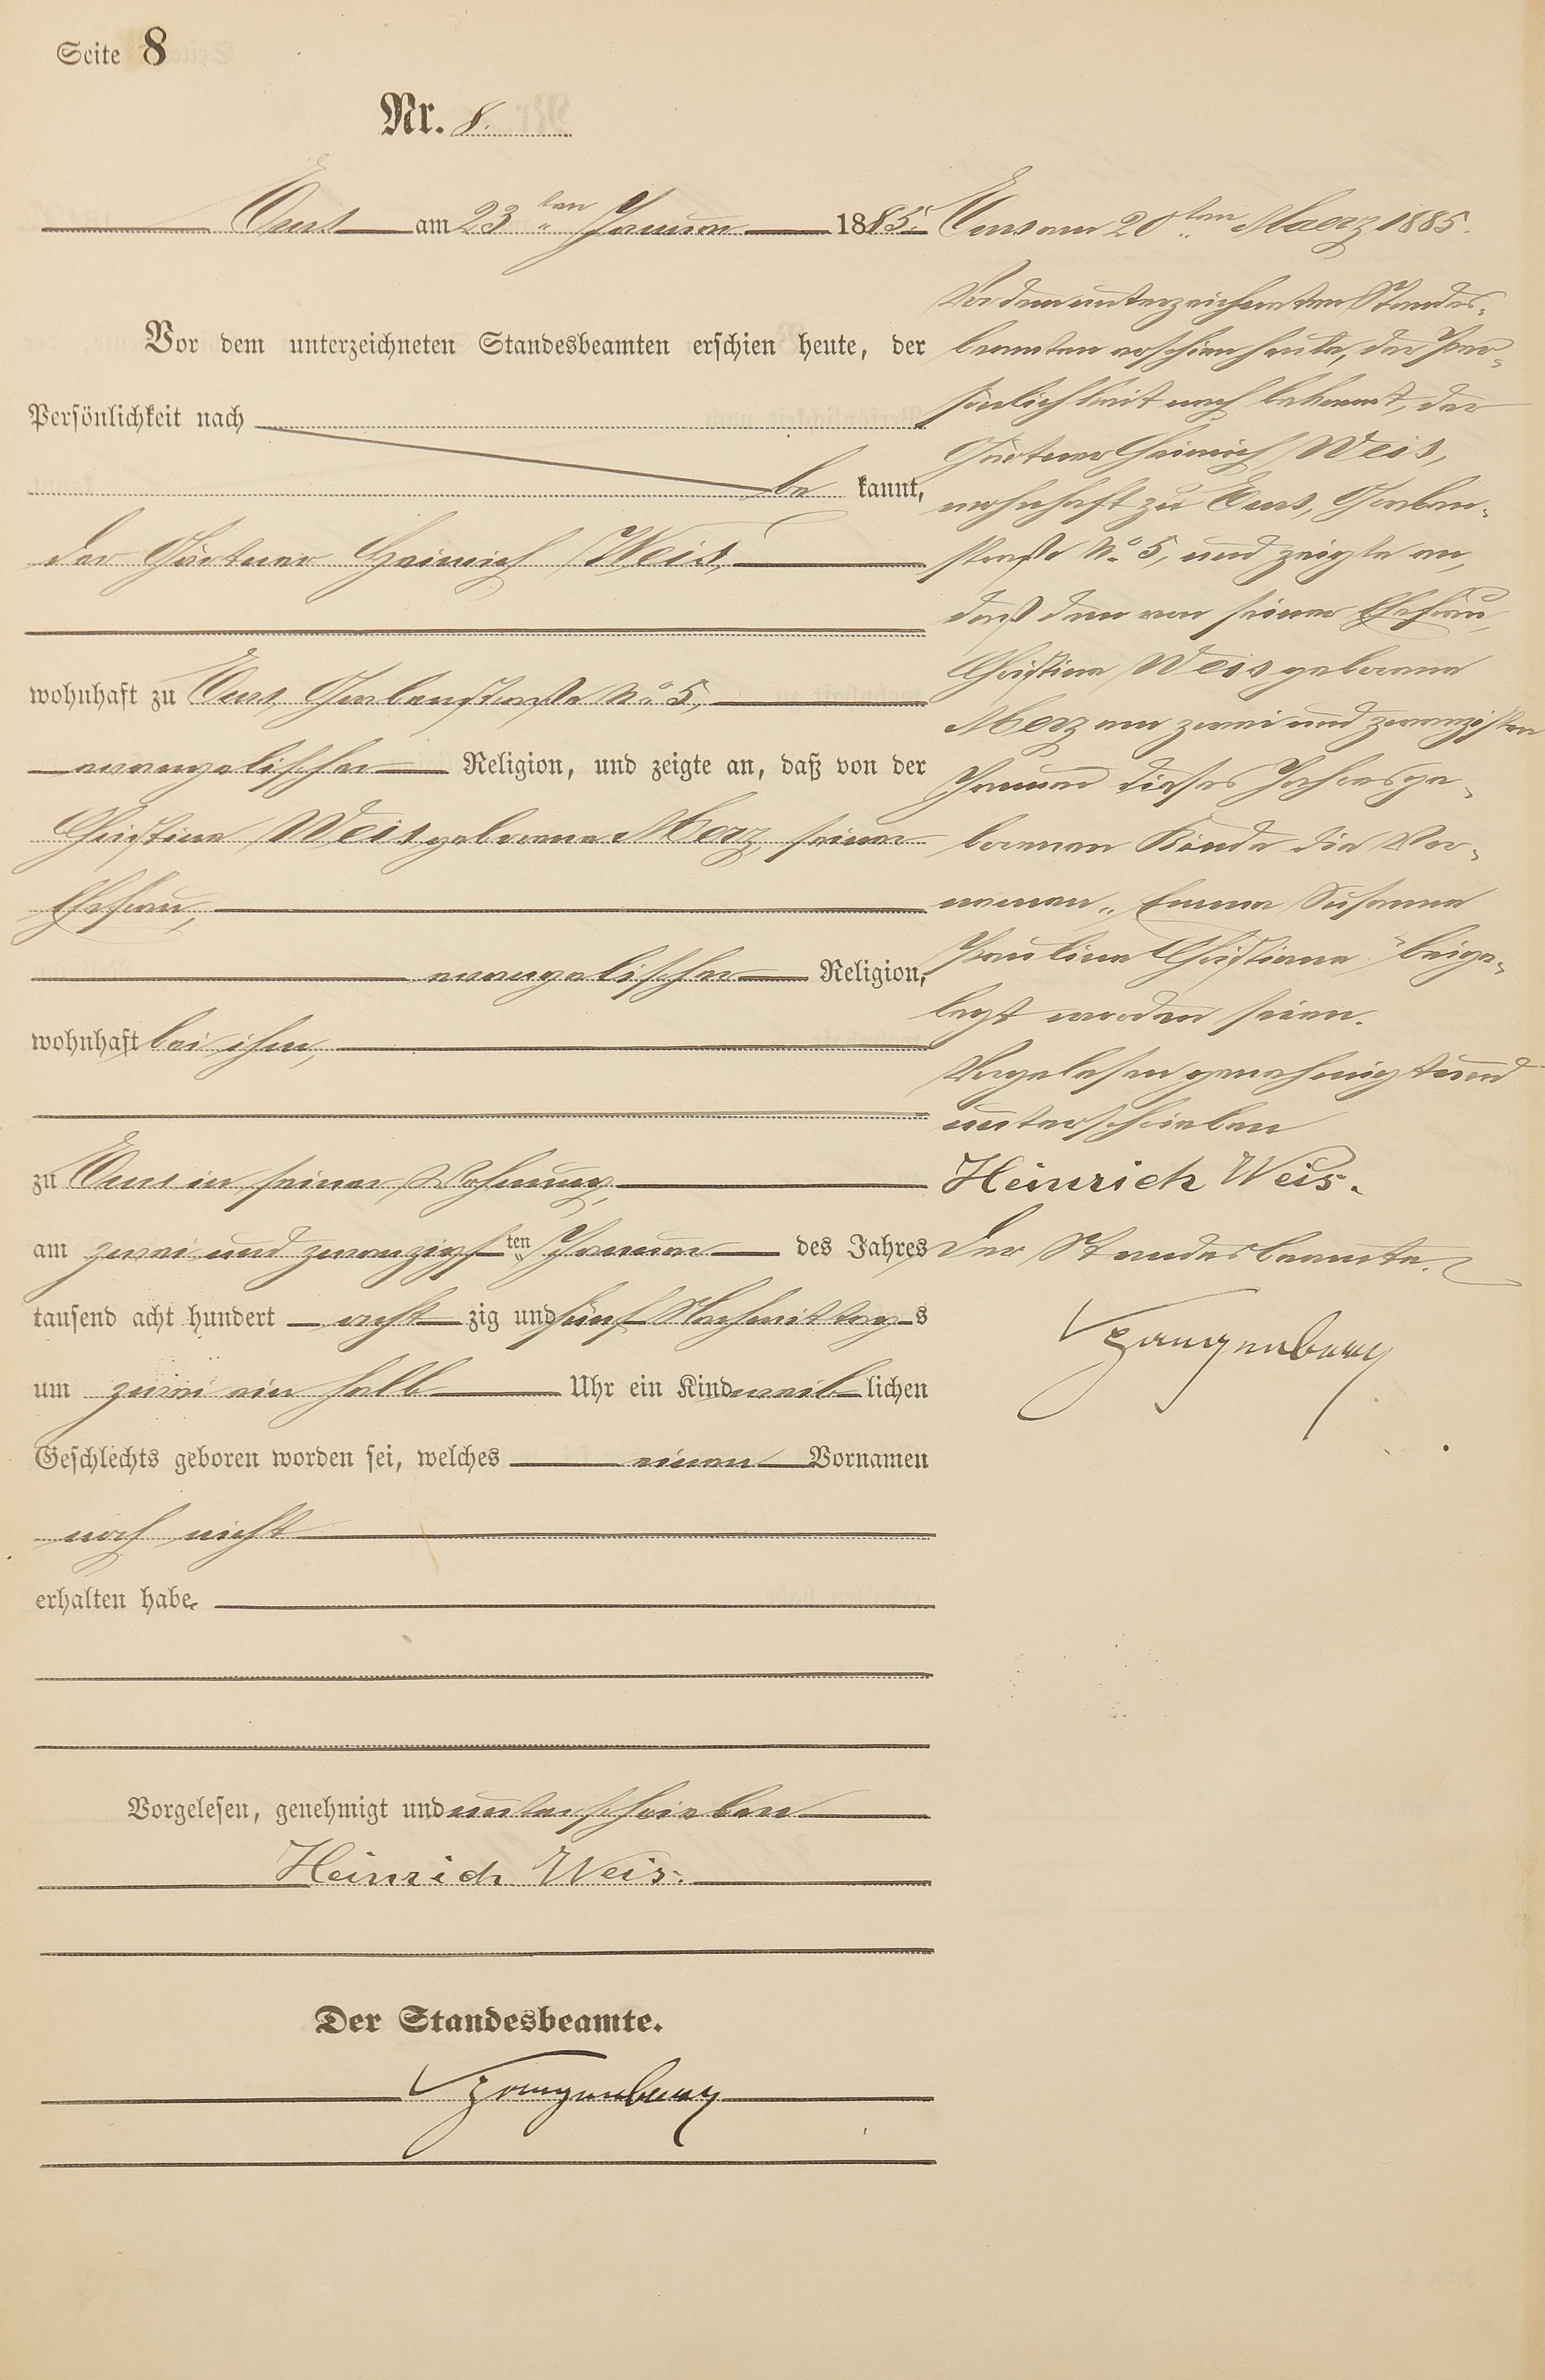 Seite 8
Nr. 8.
Ems am 23ten Januar 1885.
Vor dem unterzeichneten Standesbeamten erschien heute, der
Persönlichkeit nach
be kannt,
der Gärtner Heinrich Weis,
wohnhaft zu Ems, Grabenstraße No 5,
evangelischer Religion, und zeigte an, daß von der
Christine Weis geborene Merz, seiner
Ehefrau,
evangelischer Religion,
wohnhaft bei ihm,
zu Ems in seiner Wohnung,
am zwei und zwanzigsten Januar des Jahres
tausend acht hundert acht zig und fünf Nachmittags
um zwei ein halb Uhr ein Kind weiblichen
Geschlechts geboren worden sei, welches einen Vornamen
noch nicht
erhalten habe.
Vorgelesen, genehmigt und unterschrieben
Heinrich Weis.
Der Standesbeamte.
Ems am 20ten Maerz 1885.
Vor dem unterzeichneten Standes-
beamten erschien heute, der Per-
sönlichkeit nach bekannt, der
Gärtner Heinrich Weis,
wohnhaft zu Ems, Graben-
straße No 5, und zeigte an,
daß dem von seiner Ehefrau,
Christine Weis geborene
Merz am zwei und zwanzigsten
Januar dieses Jahres ge-
borenen Kinde die Vor-
namen „Emma Susanna
Pauline Christiane" beige-
legt worden seien.
Vorgelesen genehmigt und
unterschrieben
Heinrich Weis.
Der Standesbeamte.